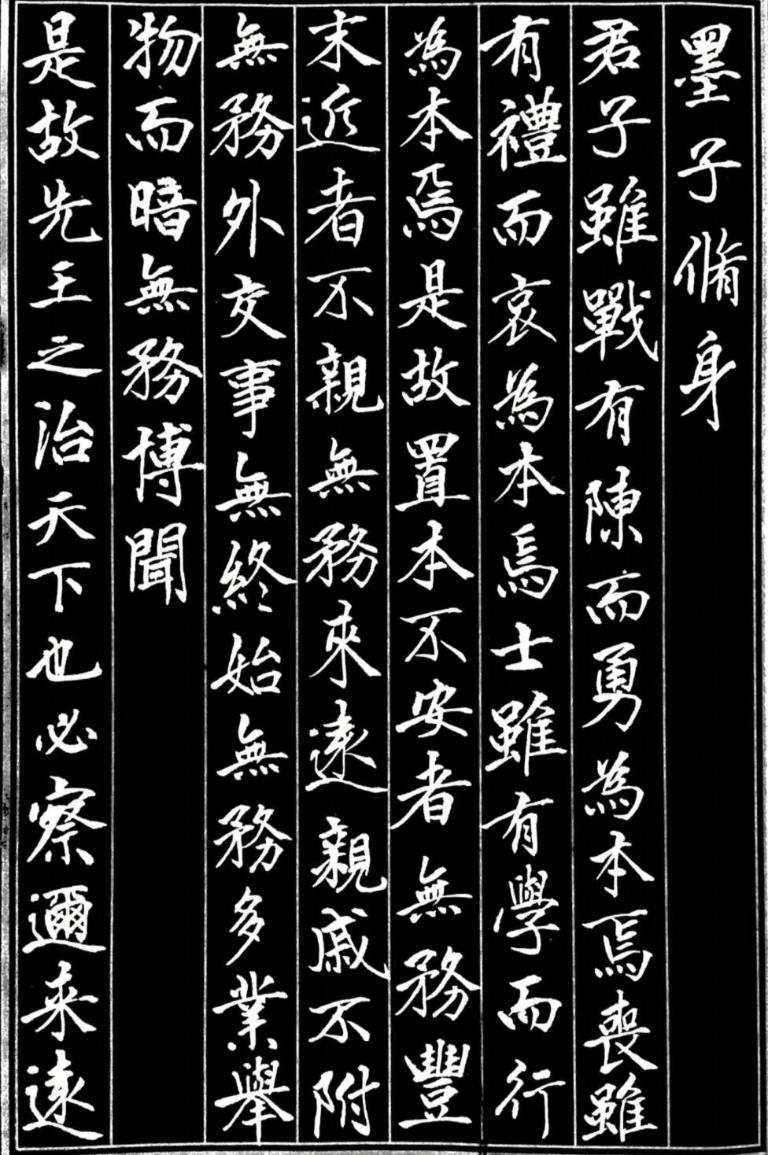 墨子脩身
君子雖戰有陳而勇為本焉喪雖
有禮而哀為本焉士雖有學而行
為本焉是故置本不安者無務豐
末近者不親無務來遠親戚不附
無務外交事無終始無務多業舉
物而暗無務博聞
是故先王之治天下也必察邇来遠